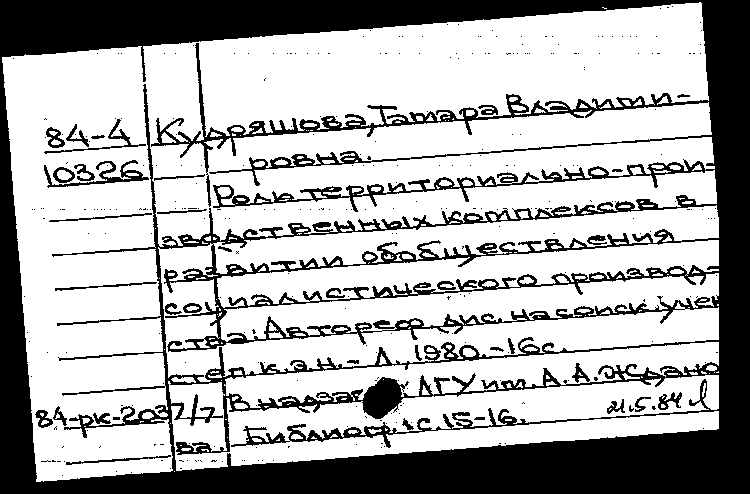 84-4 Кудряшова, Тамара Владими-
10326 ровна.
Роль территориально-прои-
зводственных комплексов в
развитии обобществления
социалистического производ-
ства: Автореф. дис. на соиск. учен
степ. к.э.н. - Л., 1980. - 16с.
В надзаг ЛГУ им. А. А. Ждано
84-рк-2037/7 ва. Библиогр.: с. 15-16. 21.5.84